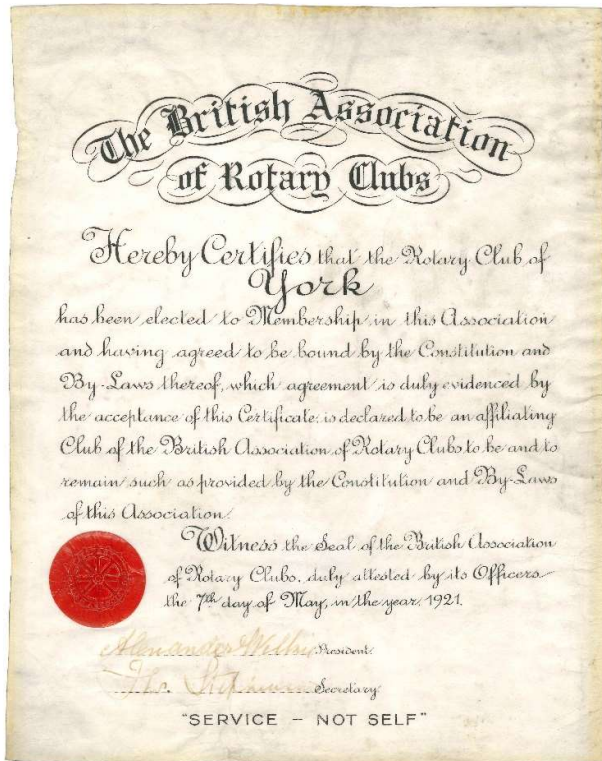 The British Association
of Rotary Clubs
Hereby Certifies that the Rotary Club of
York
has been elected to Membership in this Association
and having agreed to be bound by the Constitution and
By-Laws thereof, which agreement is duly evidenced by
the acceptance of this Certificate, is declared to be an affiliating
Club of the British Association of Rotary Clubs to be and to
remain such as provided by the Constitution and By-Laws
of this Association.
Witness the Seal of the British Association
of Rotary Clubs, duly attested by its Officers
the 7th day of May, in the year, 1921.
Alexander Wilkie President.
Secretary
"SERVICE – NOT SELF"